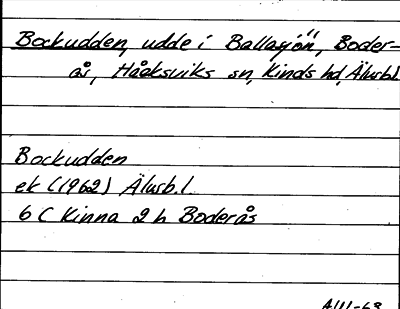 Bockudden, udde i Ballasjön, Boder-
ås, Håcksviks sn, Kinds hd, Älvsb.l
Bockudden
ek (1962) Älvsb.l
6 C Kinna 2 h Boderås